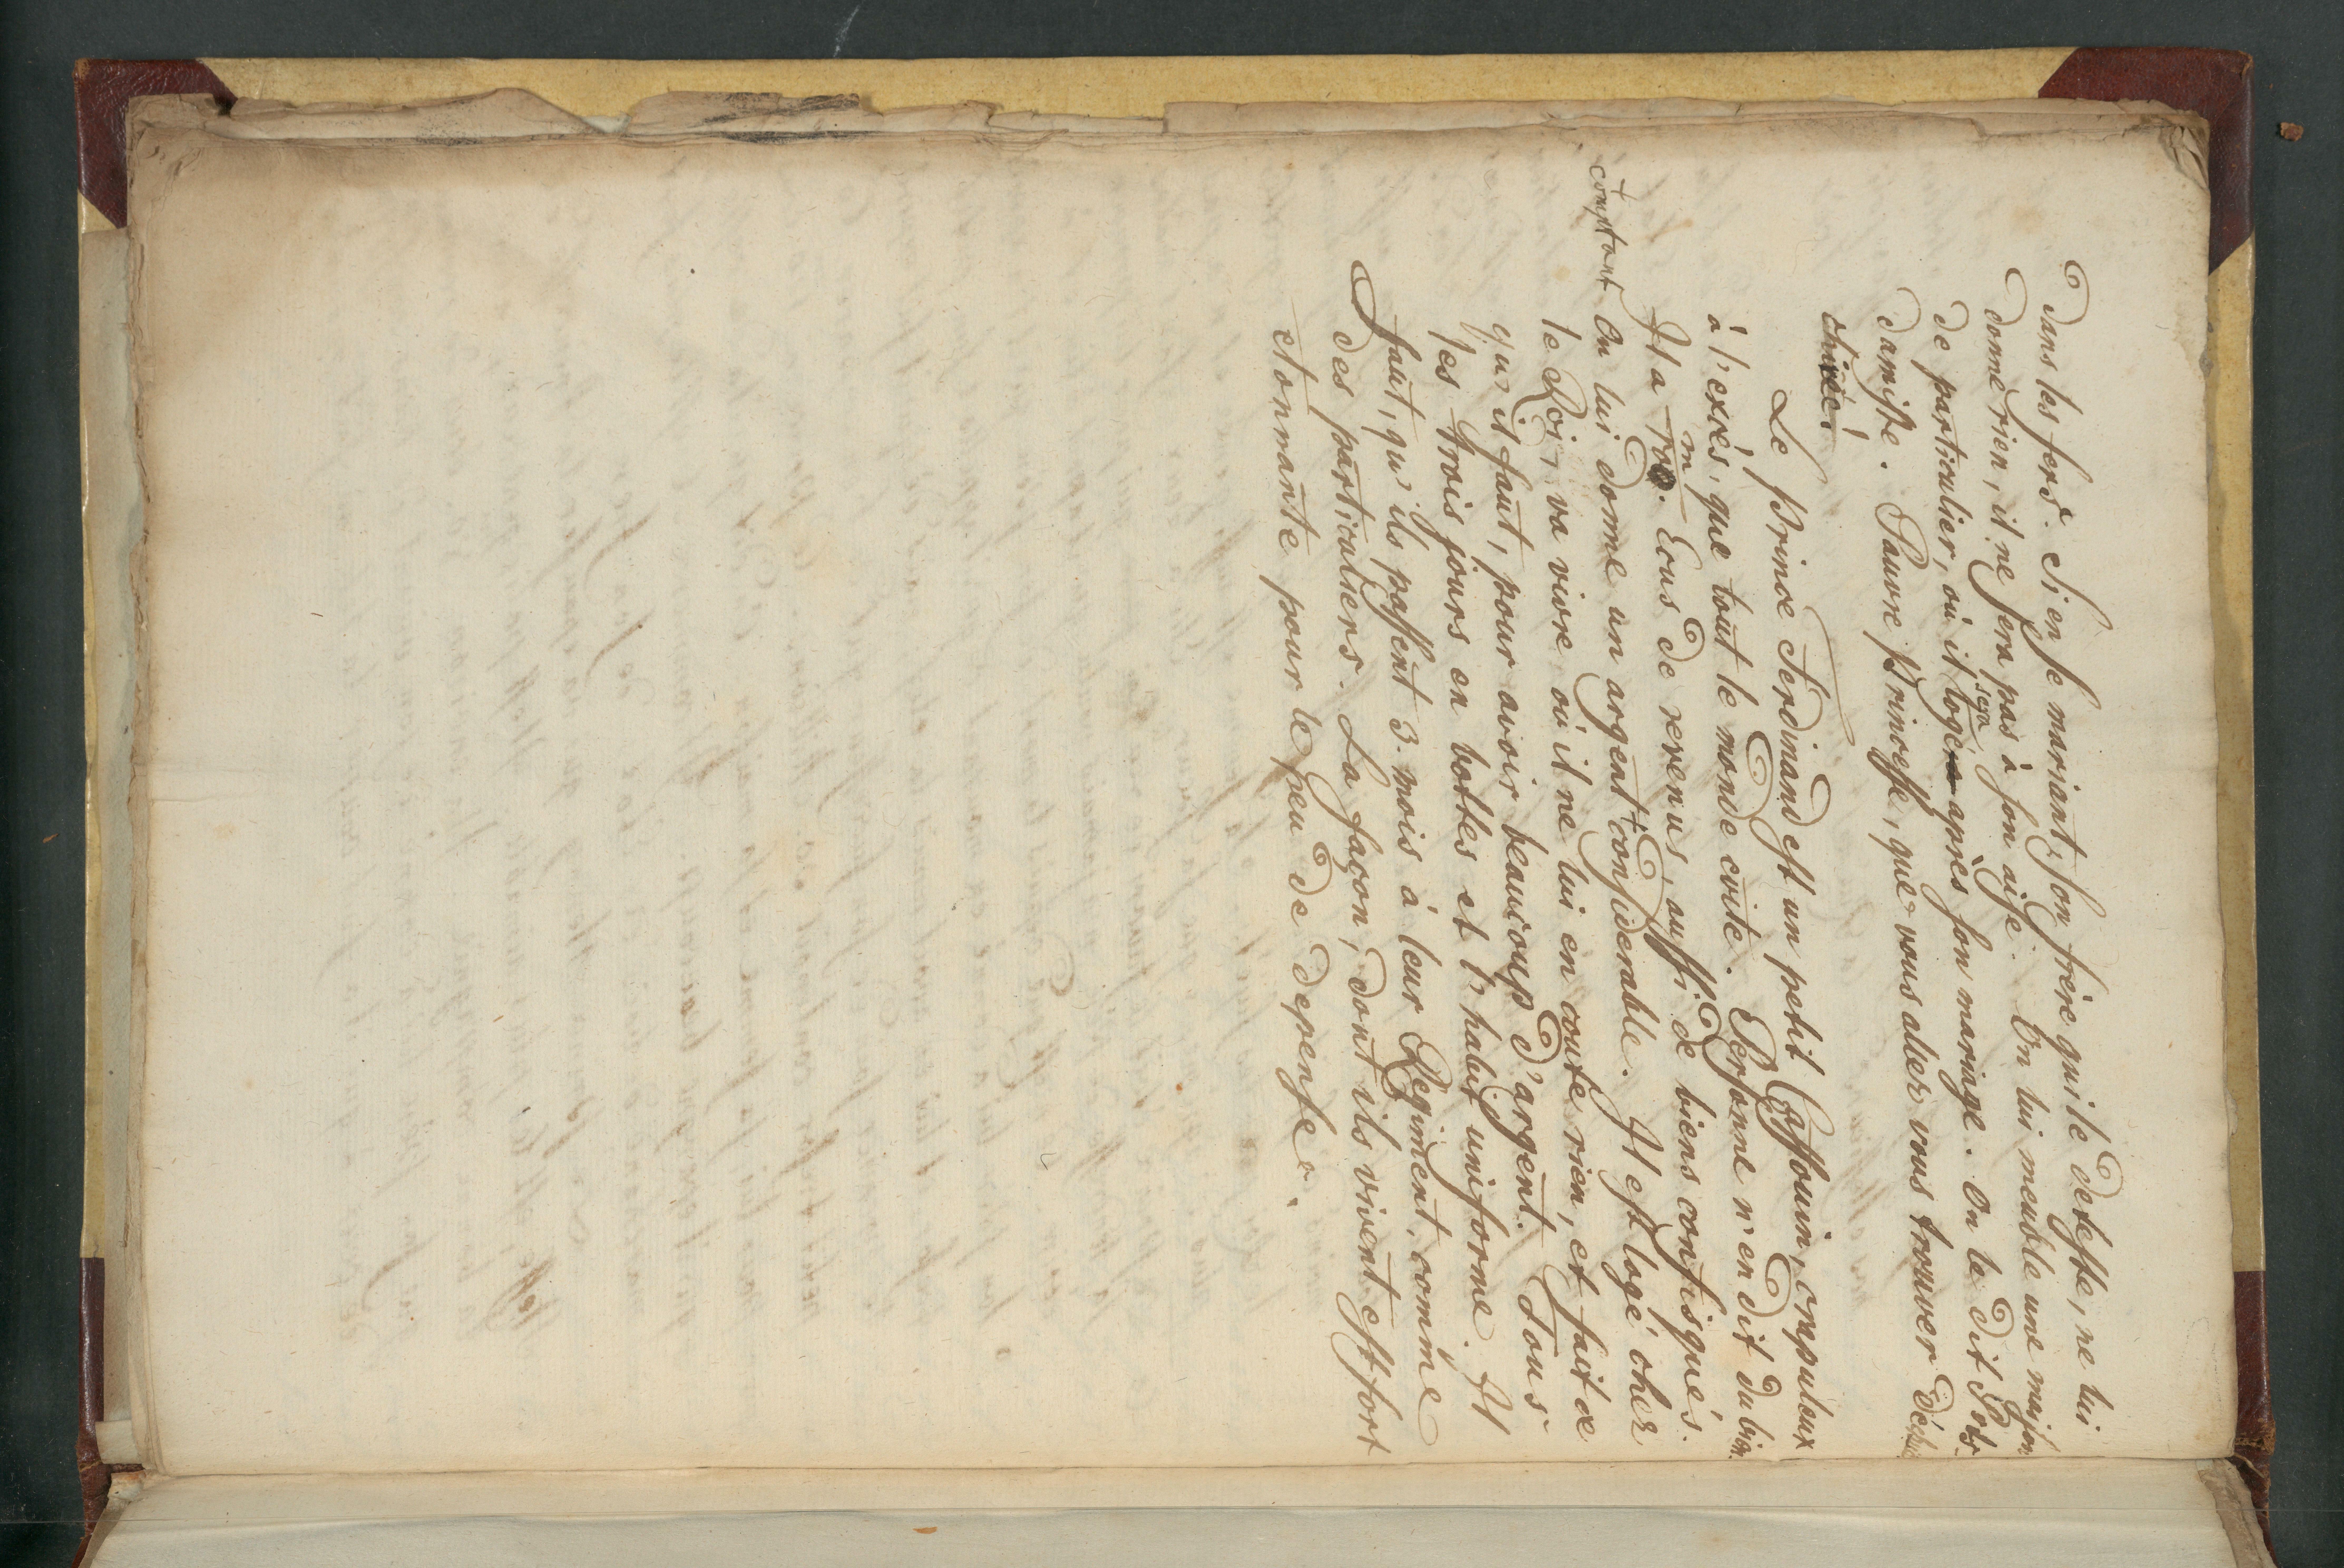 dans les fers. Si en se mariant, son frère qui le deteste, ne lui
donne rien, il ne sera pas à son aise. On lui meuble une maison
de particulier, où il sera logé après son mariage. On le dit Pots-
damiste. Pauvre Princesse, que vous allez vous trouver
Le Prince Ferdinand est un petit Caffouin, crapuleux
à l'excès, que tout le monde evite. Personne n'en dit du bien.
Il a m Ecus de revenus, aussi de biens confisqués.
On lui donne un argent comptant considerable. Il est logé chez
le Roi, va vivre où il ne lui en coute rien, et fait ce
qu'il faut, pour avoir beaucoup d'argent. Tous
les trois jours en bottes et l'habit uniforme. Il
faut, qu'ils passent 3. mois à leur Regiment, comme
des particuliers. La façon, dont ils vivent est fort
etonnante pour le peu de depense.